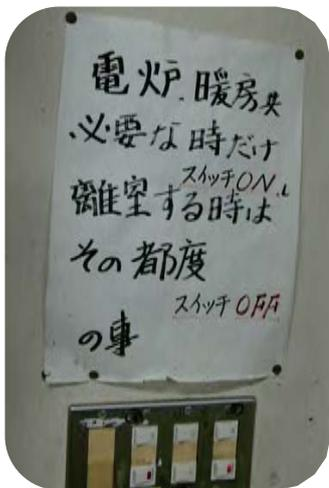 電炉、暖房共
必要な時だけ
スイッチON し
離室する時は
その都度
スイッチ OFF
の事